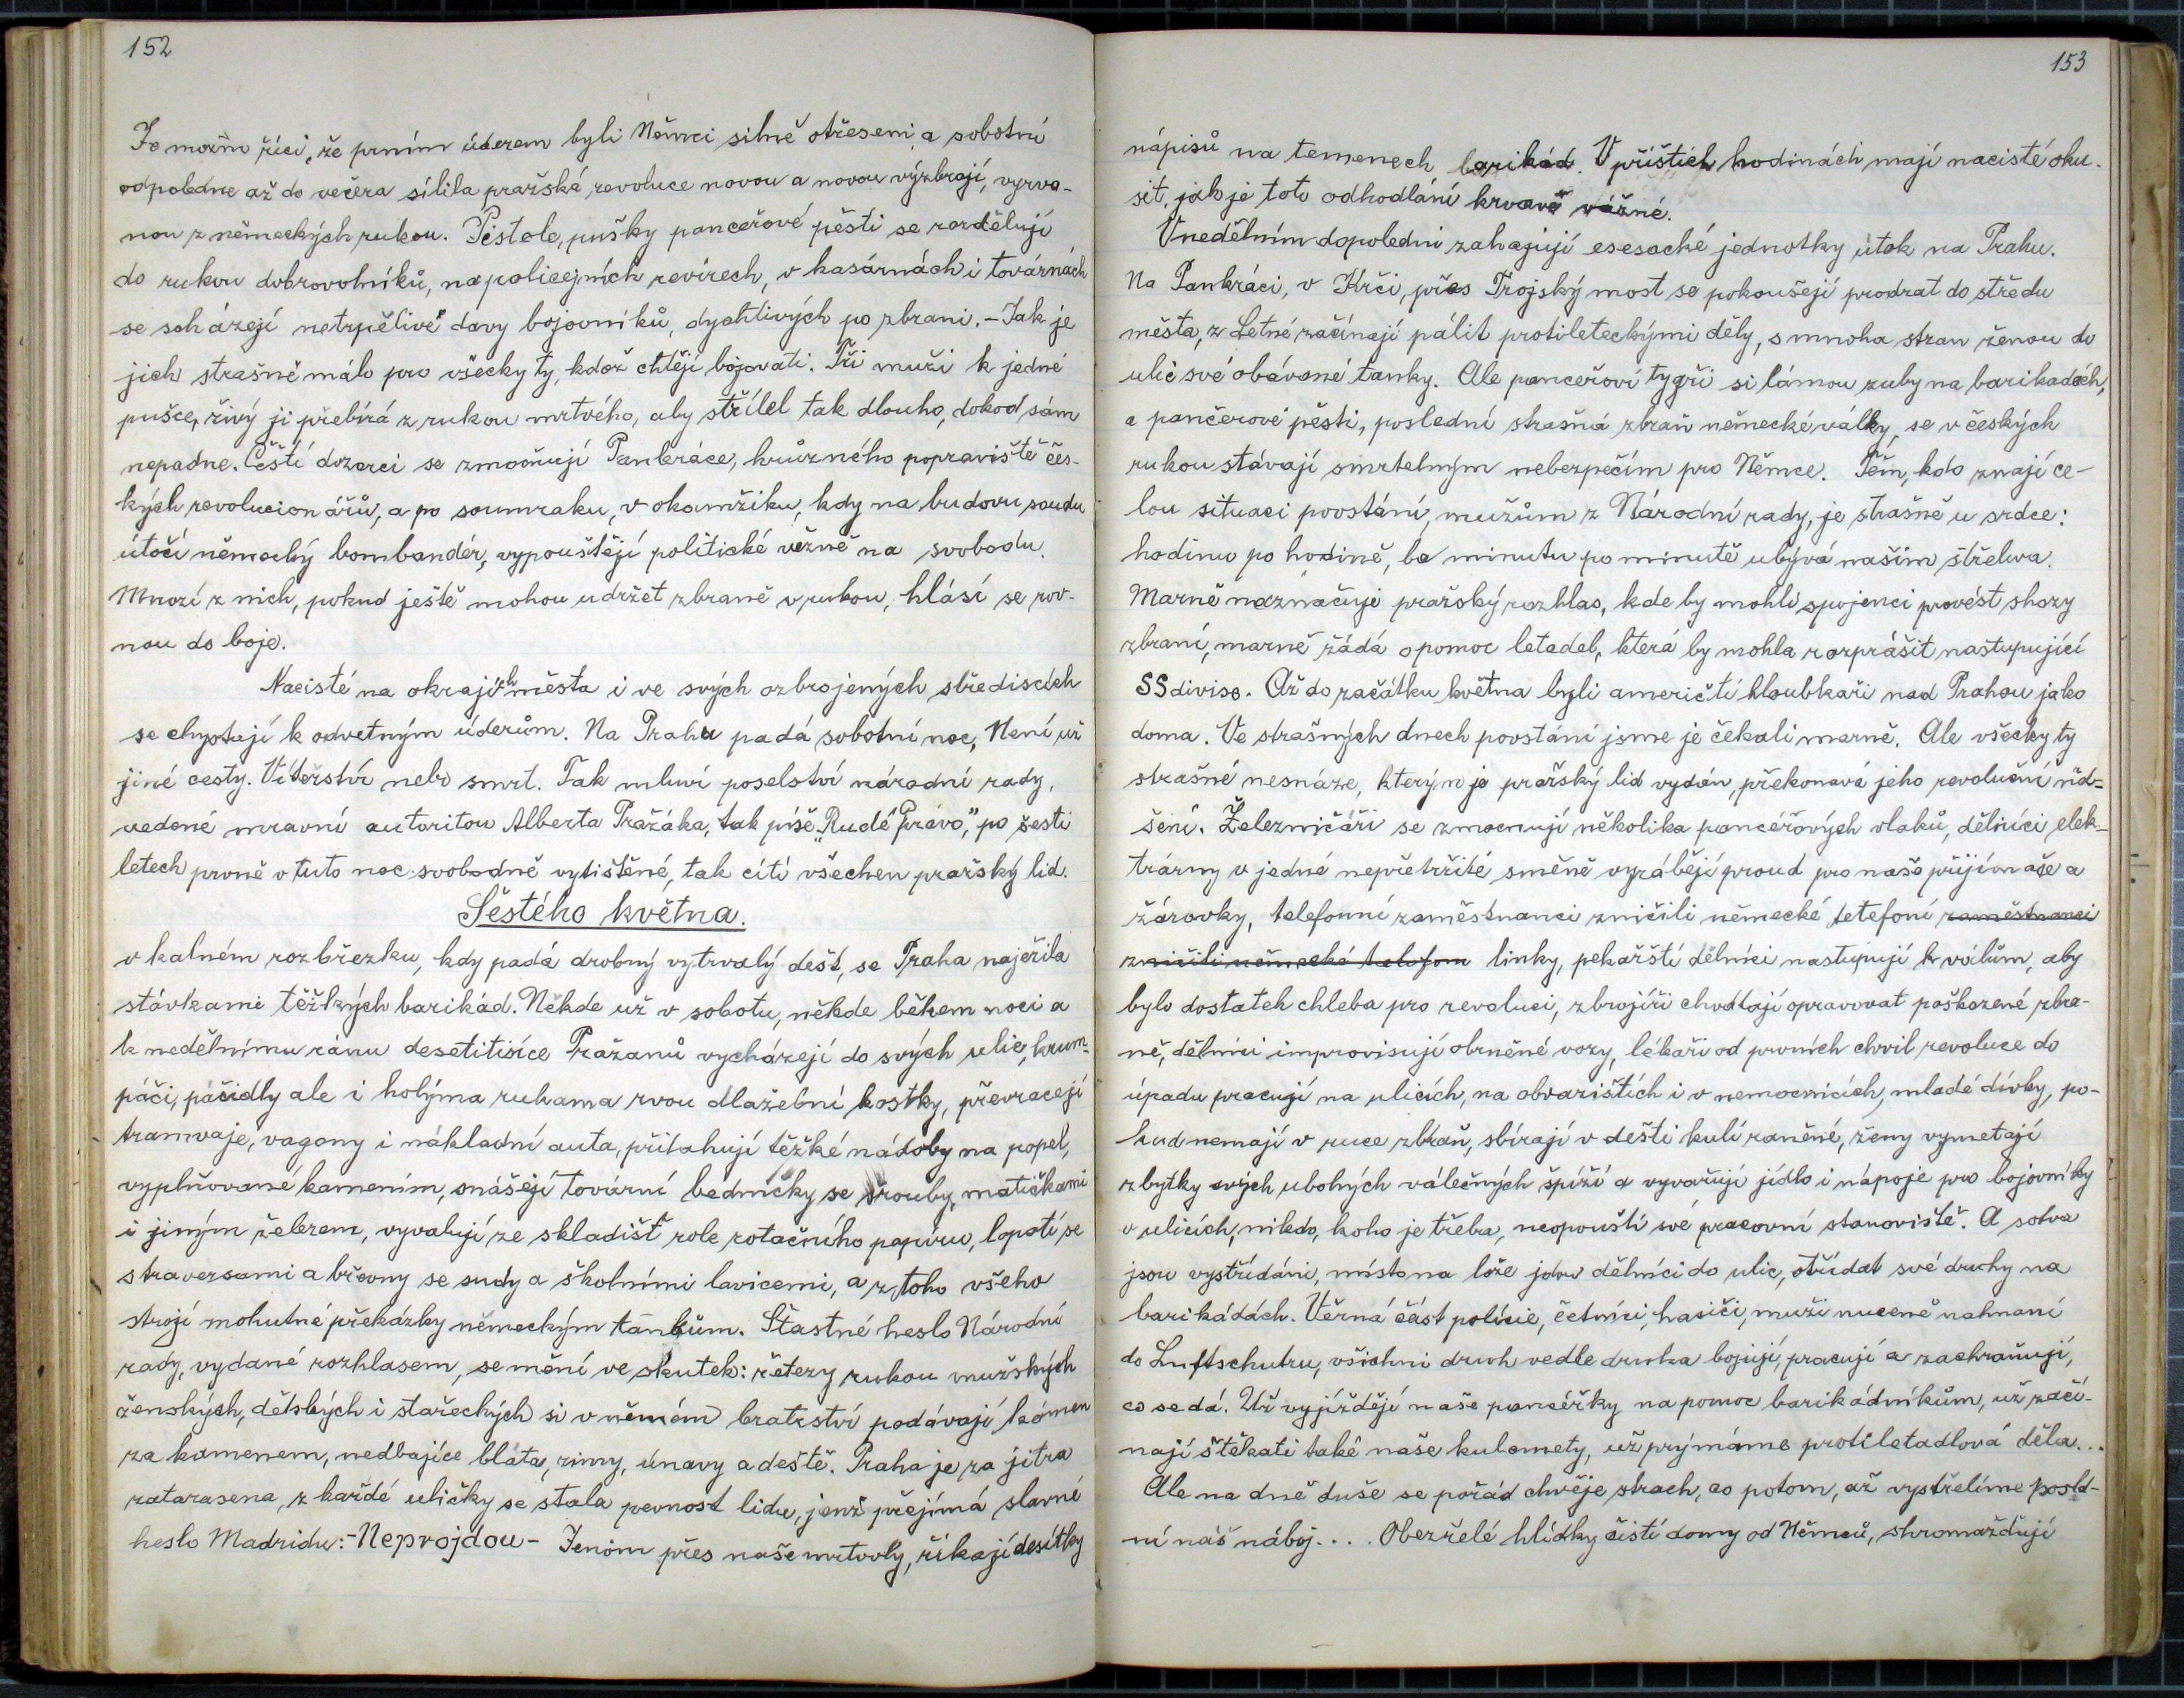 152
Je možno říci, že prním úderem byli Němci silně otřeseni a sobotní
odpoledne až do večera sílila pražská revoluce novou a novou výzbrojí, vyrva-
nou z německých rukou. Pistole, pušky pancéřové pěsti se rozdělují
do rukou dobrovolníků, na policejních revírech, v kasárnách i továrnách
se scházejí netrpělivé davy bojovníků, dychtivých po zbrani. - Jak je
jich strašně málo pro všecky ty, kdož chtějí bojovati. Tři muži k jedné
pušce, živý ji přebírá z rukou mrtvého, aby střílel tak dlouho, dokod sám
nepadne. Čeští dozorci se zmocňují Pankráce, hrůzného popraviště čes-
kých revolucionářů, a po soumraku, v okamžiku, kdy na budovu soudu
útočí německý bombandér, vypouštějí politické vězně na svobodu.
Mnozí z nich, pokud ještě mohou udržet zbraně v rukou, hlásí se rov-
nou do boje.
Nacisté na okrajích města i ve svých ozbrojených střediscích
se chystají k odvetným úderům. Na Prahu padá sobotní noc, Není už
jiné cesty. Vítězství nebo smrt. Tak mluví poselství národní rady,
vedené mravní autoritou Alberta Pražáka, tak píše „Rudé Právo," po šesti
letech prvně v tuto noc svobodně vytištěné, tak cítí všechen pražský lid.
Šestého května.
v kalném rozbřezku, kdy padá drobný vytrvalý dešť, se Praha naježila
stávkami těžkých barikád. Někde už v sobotu, někde během noci a
k nedělnímu ránu desetitisíce Pražanů vycházejí do svých ulic, krum-
páči, páčidly ale i holýma rukama rvou dlažební kostky, převracejí
tramvaje, vagony i nákladní auta, přitahují těžké nádoby na popel,
vyplňované kamením, snášejí tovární bedničky se šrouby, matičkami
i jiným železem, vyvalují ze skladišť role rotačního papíru, lopotí se
s traversami a břevny se sudy a školními lavicemi, a z toho všeho
strojí mohutné překážky německým tankům. Šťastné heslo Národní
rady, vydané rozhlasem, se mění ve skutek: řetezy rukou mužských
ženských, dětských i stařeckých si v němém bratrství podávají kámen
za kamenem, nedbajíce bláta, zimy, únavy a deště. Praha je za jitra
zatarasena, z každé uličky se stala pevnost lidu, jenž přejímá slavné
heslo Madridu: - Neprojdou - Jenom přes naše mrtvoly, říkají desítky
153
nápisů na temenech barikád. V příštích hodinách mají nacisté oku-
sit, jak je toto odhodlání krvavě vážné.
V nedělním dopoledni zahajují esesacké jednotky útok na Prahu.
Na Pankráci, v Krči, přes Trojský most se pokoušejí prodrat do středu
města, z Letné začínají pálit protileteckými děly, s mnoha stran ženou do
ulic své obávané tanky. Ale pancéřoví tygři si lámou zuby na barikadách,
a pančerové pěsti, poslední strašná zbraň německé války, se v českých
rukou stávají smrtelným nebezpečím pro Němce. Těm, kdo znají ce-
lou situaci povstání, mužům z Národní rady, je strašně u srdce:
hodinu po hodině, ba minutu po minutě ubývá našim střeliva.
Marně naznačuje pražský rozhlas, kde by mohli spojenci provést shozy
zbraní, marně žádá o pomoc letadel, která by mohla rozprášit nastupující
SS divise. Až do začátku května byli američtí hloubkaři nad Prahou jako
doma. Ve strašných dnech povstání jsme je čekali marně. Ale všecky ty
strašné nesnáze, kterým je pražský lid vydán, překonává jeho revoluční nad-
šení. Železničáři se zmocnují několika pancéřových vlaků, dělníci elek-
trárny v jedné nepřetržité směně vyrábějí proud pro naše přijímače a
žárovky, telefonní zaměstnanci zničili německé tetefoní zaměstnanci
zničili německé telefonn linky, pekařští dělníci nastupují k válům, aby
bylo dostatek chleba pro revoluci, zbrojíři chvátají opravovat poškozené zbra-
ně, dělníci improvisují obrněné vozy, lékaři od prvních chvil revoluce do
úpadu pracují na ulicích, na obvazištích i v nemocnicích, mladé dívky, po-
kud nemají v ruce zbraň, sbírají v dešti kulí raněné, ženy vymetají
zbytky svých ubohých válečných špíží a vyvařují jídlo i nápoje pro bojovníky
v ulicích, nikdo, koho je třeba, neopouští své pracovní stanoviště. A sotva
jsou vystřídáni, místo na lože jdou dělníci do ulic, střídat své druhy na
barikádách. Věrná část polície, četníci, hasiči, muži nuceně nahnaní
do Luftschutzu, všichni druh vedle druha bojují, pracují a zachraňují,
co se dá. Už vyjíždějí naše pancéřky na pomoc barikádníkům, už začí-
nají štěkati také naše kulomety, už prý máme protiletadlová děla...
Ale na dně duše se pořád chvěje strach, co potom, až vystřelíme posled-
ní náš náboj.... Obezřelé hlídky čistí domy od Němců, shromažďují